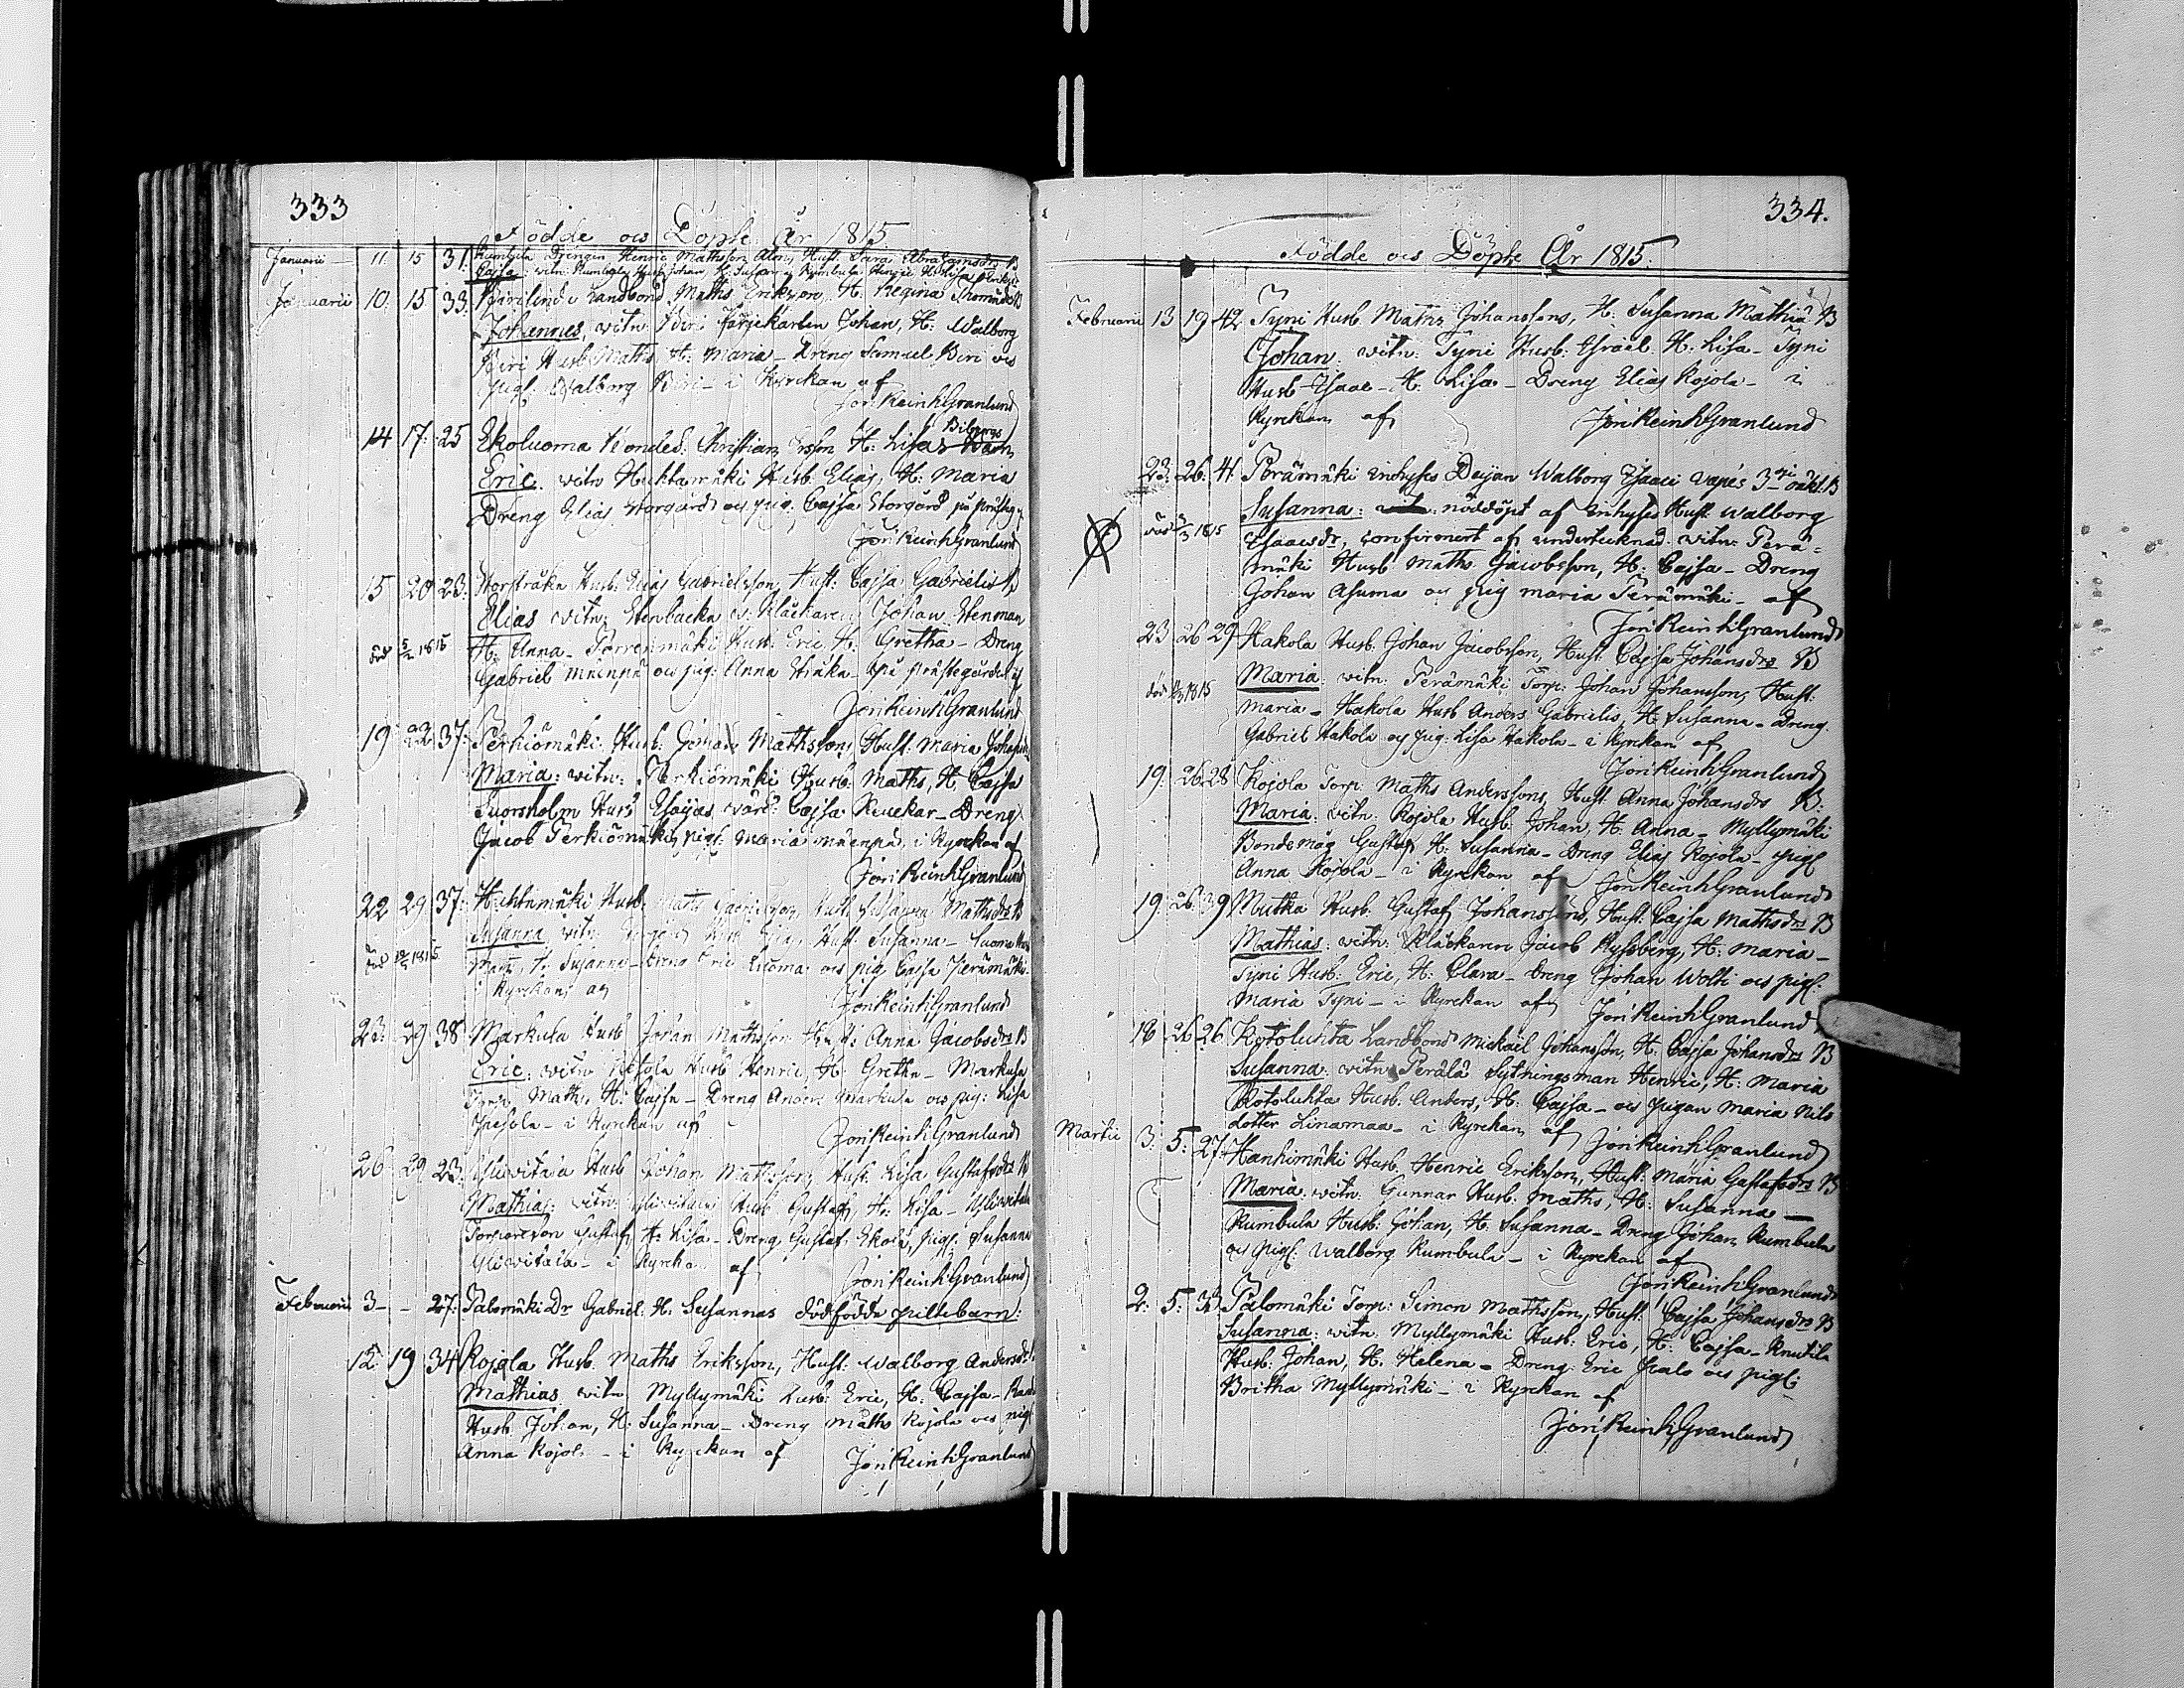 333
Födde och Döpte År 1815.
Januarii 11. 15 31. Rumbula Drengen Henric Mathsson Alm, Hust. Sara Abrahamsdr B
Cajsa: witn: Rumbula Husb. Johan, H. Susanna Rumbula
Januarii 10. 15 33. Biri Landbond Maths Eriksson, H. Regina Thomædr B
Johannes, witn: Biri Färjekarlen Johan, H: Walborg
Biri Husb. Maths, H: Maria - Dreng Samuel Biri och
pigl. Walborg Biri - i Kyrckan af
Jon Reinh Granlund
14 17. 25 Ekoluoma Christian Ersson H: Lisas
Eric: witn Huhtamäki Husb. Elias, H: Maria
Dreng Elias Storgård och pig. Cajsa Storgård på prästeg.
Jon Reinh Granlund
15 20 23. Storstråka Husb. Elias Gabrielsson, Hust: Cajsa Gabrielis B
Elias witn: Stenbacka Klåckaren Johan Stenman
död 5/2 1815 H: Anna - Porrenmäki Husb. Eric, H: Gretha - Dreng
Gabriel Mäenpä och pig: Anna Stråka - på prästegården af
Jon Reinh Granlund
19. 22 37. Perkiömäki Husb: Johan Mathsson, Hust. Maria
Maria: witn: Perkiömäki Husb: Maths, H. Cajsa
Suorsholm Husb. Esaijas, Cajsa - Dreng
Jacob Perkiömäki, pigl: Maria Mäenpä, i Kyrckan af
Jon Reinh Granlund
22 29 37. Huhtamäki Husb. Maths Hust. Susanna Mathsdr B
Susanna witn Husb. Elias, Hust. Susanna - Luoma
död 1815 Maths, H. Susanna - Dreng Eric Luoma och pig Cajsa Perämäki
i Kyrckan af
Jon Reinh Granlund
23. 29 38 Markula Husb. Johan Mathsson Hust: Anna Jacobsdr B
Eric: witn Pesola Husb Henric, H: Gretha - Markula
Torp. Maths, H: Cajsa - Dreng Anders Markula och pig: Lisa
Pesola - i Kyrckan af
Jon Reinh Granlund
26 29 23. Yliwitala Husb Johan Mathsson, Hust. Lisa Gustafsdr B
Mathias: witn: Yliwitala Husb Gustaf, H: Lisa - Yliwitala
Torparen Gustaf, H: Lisa - Dreng Gustaf Ekola, pigl. Susanna
Yliwitala - i Kyrckan af
Jon Reinh Granlund
Februarii 3 - - 27. Palomäki Dr Gabriel: H. Susannas dödfödda piltebarn:
12. 19 34 Kojola Husb. Maths Eriksson, Hust. Walborg Andersdr
Mathias witn Myllymäki Husb. Eric, H: Cajsa -
Husb. Johan, H: Susanna - Dreng Maths Kojola och pigl
Anna Kojola - i Kyrckan af
Jon Reinh Granlund
334.
Födde och Döpte År 1815.
Februarii 13 19 42 Tyni Husb. Maths Johanssons, H: Susanna Mathiæ B
Johan. witn: Tyni Husb: Esrael. H: Lisa - Tyni
Husb. Esaac - H: Lisa - Dreng Elias Kojola - i
Kyrckan af
Jon Reinh Granlund
23. 26. 41 Perämäki inhyses Deijan Walborg Esaaci 3die oäkt. B
Susanna: nöddöpt af inhyses Hust. Walborg
död 3/3 1815 Esaacsdr, confirmert af undertecknad. witn: Perä=
mäki Husb Maths Jacobsson, H: Cajsa - Dreng
Johan Asuma och pig Maria Perämäki - af
Jon Reinh Granlund
23 26 29 Hakola Husb. Johan Jacobsson, Hust. Cajsa Johansdr B
Maria: witn. Perämäki Torp: Johan Johansson, Hust.
död 1815 Maria - Hakola Husb Anders Gabrielis, H. Susanna - Dreng
Gabriel Hakola och pig: Lisa Hakola - i Kyrckan af
Jon Reinh Granlund
19. 26 28 Kojola Torp: Maths Anderssons, Hust. Anna Johansdr B.
Maria: witn. Kojola Husb. Johan, H. Anna - Myllymäki
Bondemåg Gustaf H. Susanna - Dreng Elias Kojola - pigl
Anna Kojola - i Kyrckan af Jon Reinh Granlund
19. 26. 39 Mutka Husb. Gustaf Johanssons, Hust. Cajsa Mathsdr B
Mathias: witn: Klåckaren Jacob Ryssberg, H: Maria -
Tyni Husb: Eric, H: Clara - Dreng Johan Wolti och pigl:
Maria Tyni - i Kyrckan af Jon Reinh Granlund
18 26 26 Kotoluhta Landbond Mickael Johansson, H. Cajsa Johansdr B
Susanna: witn: Perälä Sytningsman Henric, H: Maria
Kotoluhta Husb. Anders, H: Cajsa - och pigan Maria Nils
dotter Linamaa - i Kyrckan af Jon Reinh Granlund
Martii 3. 5. 27. Hanhimäki Husb. Henric Eriksson, Hust: Maria Gustafsdr B
Maria: witn: Gunnar Husb. Maths, H: Susanna -
Rumbula Husb: Johan, H. Susanna - Dreng Johan Rumbula
och pigl. Walborg Rumbula - i Kyrckan af
Jon Reinh Granlund
2. 5. 33 Palomäki Torp: Simon Mathsson, Hust. Cajsa Johansdr B
Susanna: witn Myllymäki Husb. Eric, H: Cajsa - Knutila
Husb: Johan, H. Helena - Dreng Eric Palo och pigl:
Britha Myllymäki - i Kyrckan af
Jon Reinh Granlund